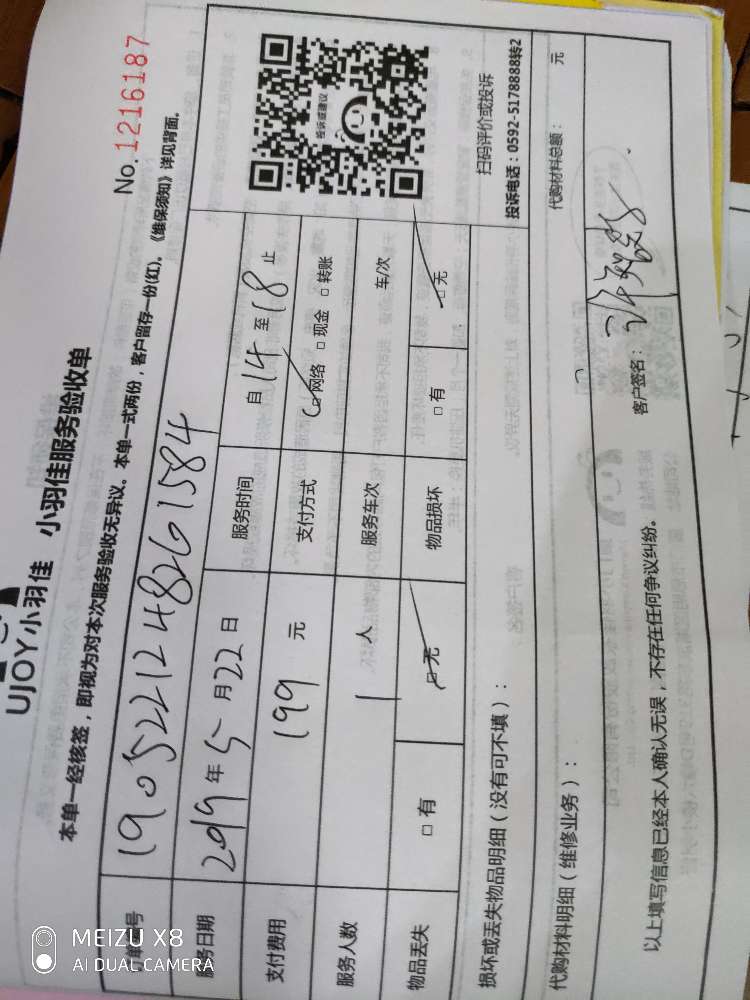 UJOY小羽佳 小羽佳服务验收单
No.1216187
本单一经核签，即视为对本次服务验收无异议。本单一式两份，客户留存一份(红)。《维保须知》详见背面。
订单号 190522124826 1584
服务日期 2019年5月22日 服务时间 自14至18止
支付费用 199 元 支付方式 □网络 □现金 □转账
服务人数 1 人 服务车次 车/次
物品丢失 □有 □无 物品损坏 □有 □无
投诉或建议
扫码评价或投诉
投诉电话：0592-5178888转2
损坏或丢失物品明细（没有可不填）：
代购材料明细（维修业务）： 代购材料总额： 元
以上填写信息已经本人确认无误，不存在任何争议纠纷。 客户签名：
MEIZU X8
AI DUAL CAMERA